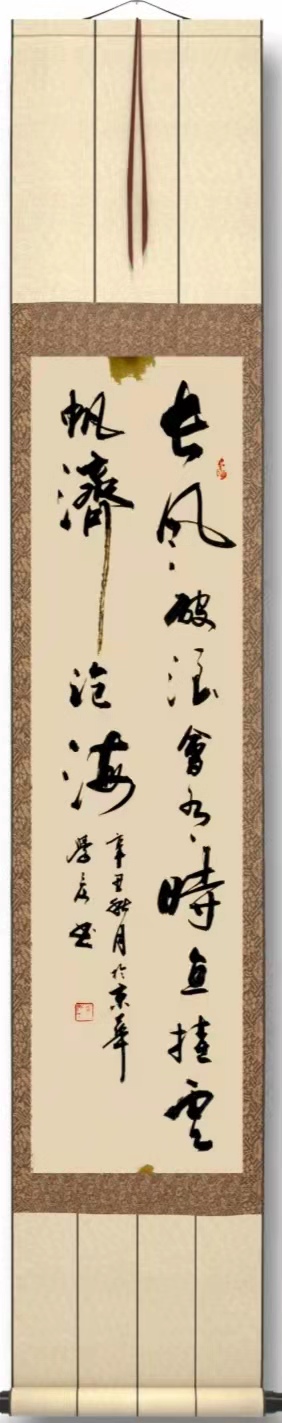 長風破浪會有時直掛雲
帆濟滄海
辛丑秋月於京華
書